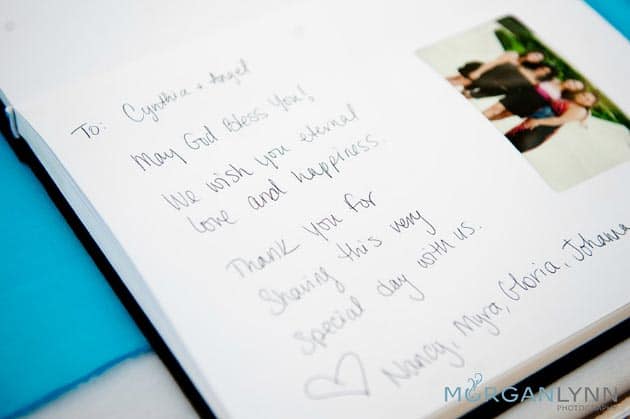 To: Cynthia + Angel
May God Bless You!
We wish you eternal
love and happiness.
Thank You for
Sharing this very
Special day with us.
♡ Nancy, Myra, Gloria, Johanna
MORGANLYNN
PHOTOGRAPHY